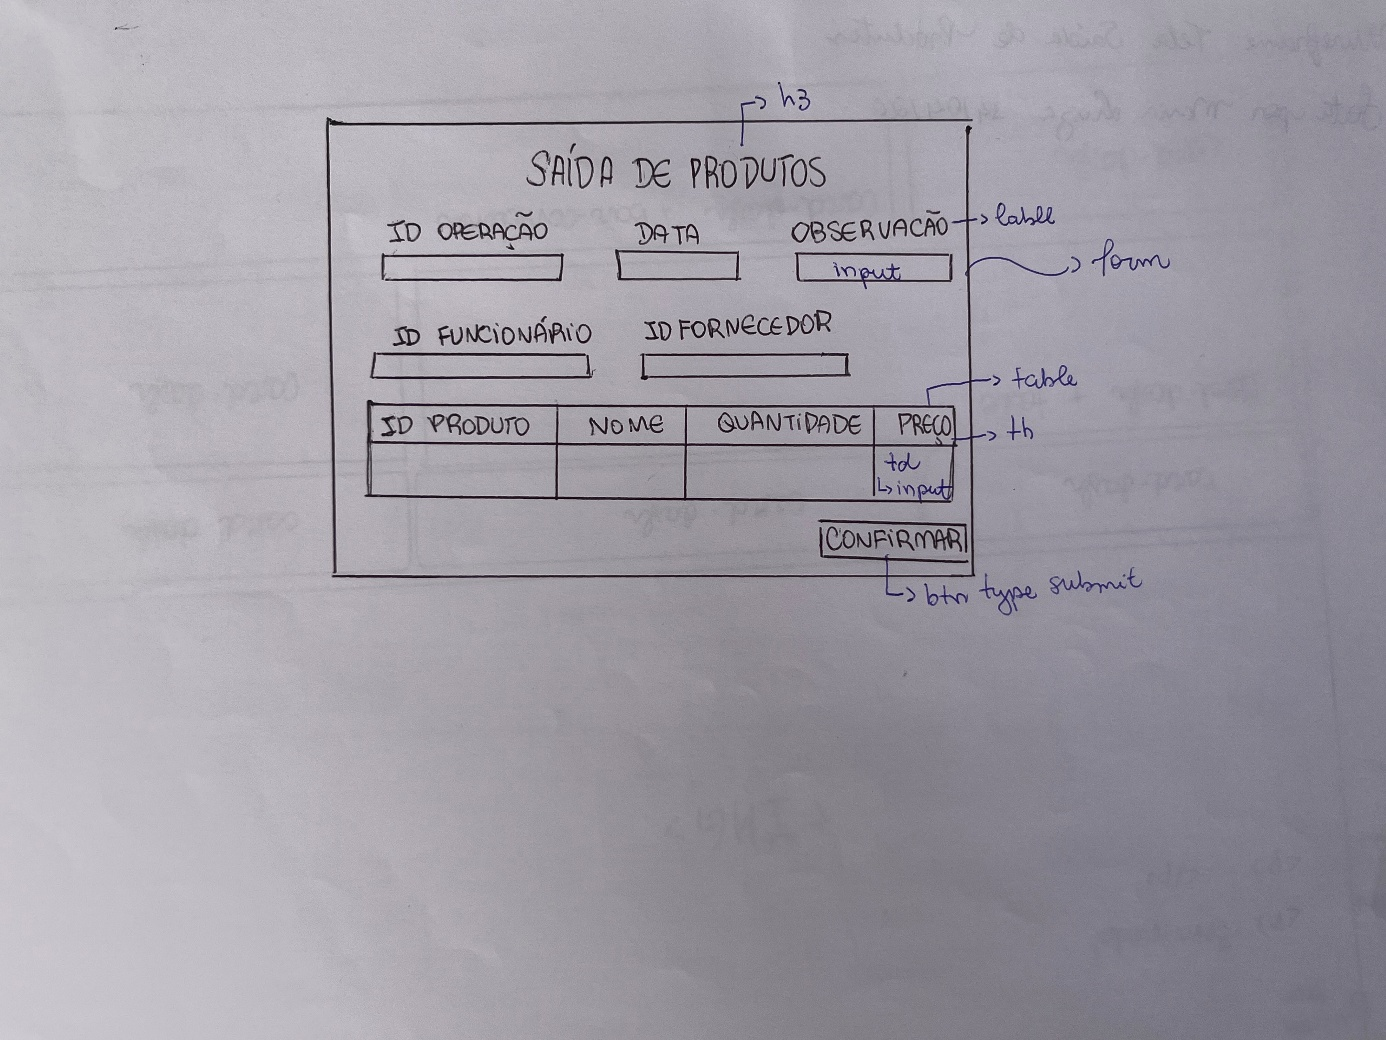 h3
SAÍDA DE PRODUTOS
ID OPERAÇÃO DATA OBSERVACÃO lable
input form
ID FUNCIONÁRIO ID FORNECEDOR
table
ID PRODUTO NOME QUANTIDADE PREÇO th
td
input
CONFIRMAR
btn type submit